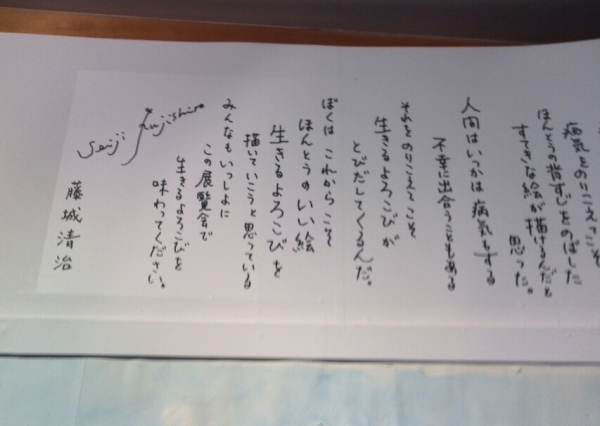 病気をのりこえてこそ
ほんとうの背すじをのばした
すてきな絵が描けるんだと
思った。
人間はいつかは病気もする
不幸に出合うこともある
それをのりこえてこそ
生きるよろこびが
とびだしてくるんだ。
ぼくは これから こそ
ほんとうのいい絵
生きるよろこびを
描いていこうと思っている
みんなもいっしょに
この展覧会で
生きるよろこびを
味わってください。
Seiji Fujishiro
藤城清治